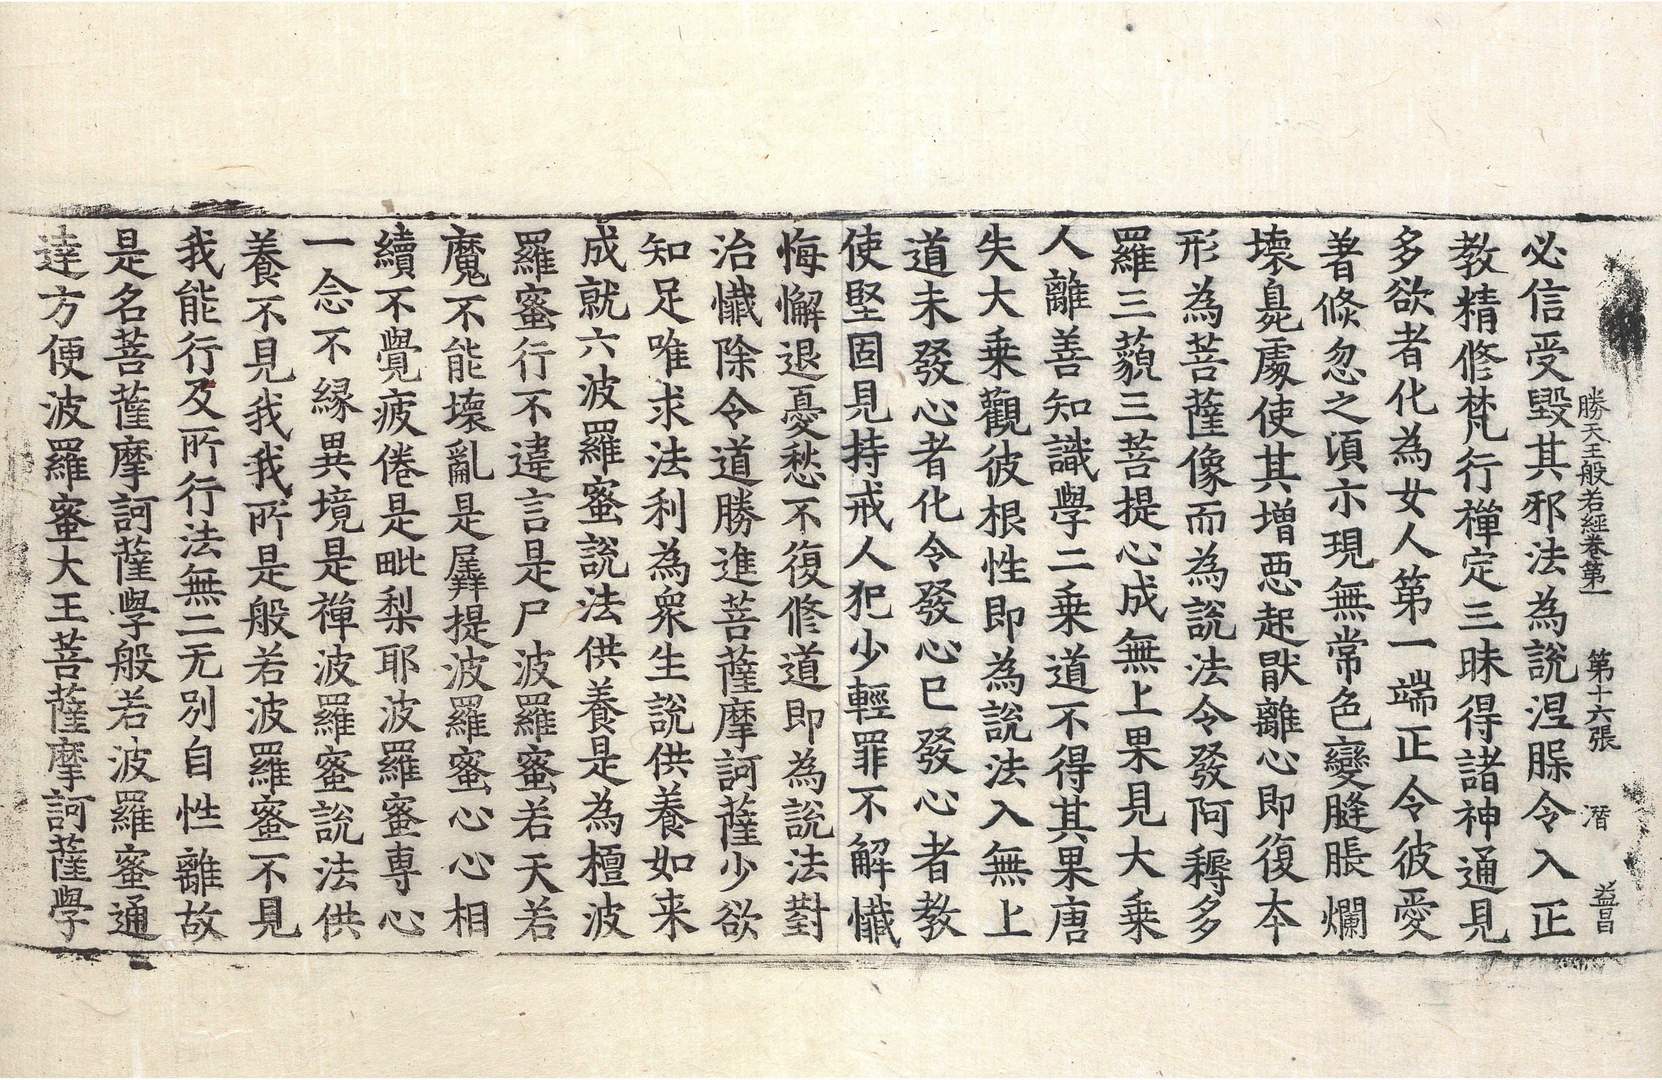 勝天王般若經卷第一 第十六張 潛 益昌
必信受毀其邪法為說涅脲令入正
教精修梵行禪定三昧得諸神通見
多欲者化為女人第一端正令彼愛
著倏忽之湏亦現無常色變膖脹爛
壞臰䖏使其增惡起猒離心即復本
形為菩薩像而為說法令發阿耨多
羅三藐三菩提心成無上果見大乘
人離善知識學二乘道不得其果唐
失大乘觀彼根性即為說法入無上
道未發心者化令發心已發心者教
使堅固見持戒人犯少輕罪不解懺
悔懈退憂愁不復修道即為說法對
治懺除令道勝進菩薩摩訶薩少欲
知足唯求法利為衆生說供養如来
成就六波羅蜜說法供養是為檀波
羅蜜行不違言是尸波羅蜜若天若
魔不能壞亂是羼提波羅蜜心心相
續不覺疲倦是毗梨耶波羅蜜專心
一念不緣異境是禪波羅蜜說法供
養不見我我所是般若波羅蜜不見
我能行及所行法無二无別自性離故
是名菩薩摩訶薩學般若波羅蜜通
達方便波羅蜜大王菩薩摩訶薩學